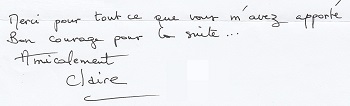 Merci pour tout ce que vous m'avez apporté
Bon courage pour la suite...
Amicalement
Claire